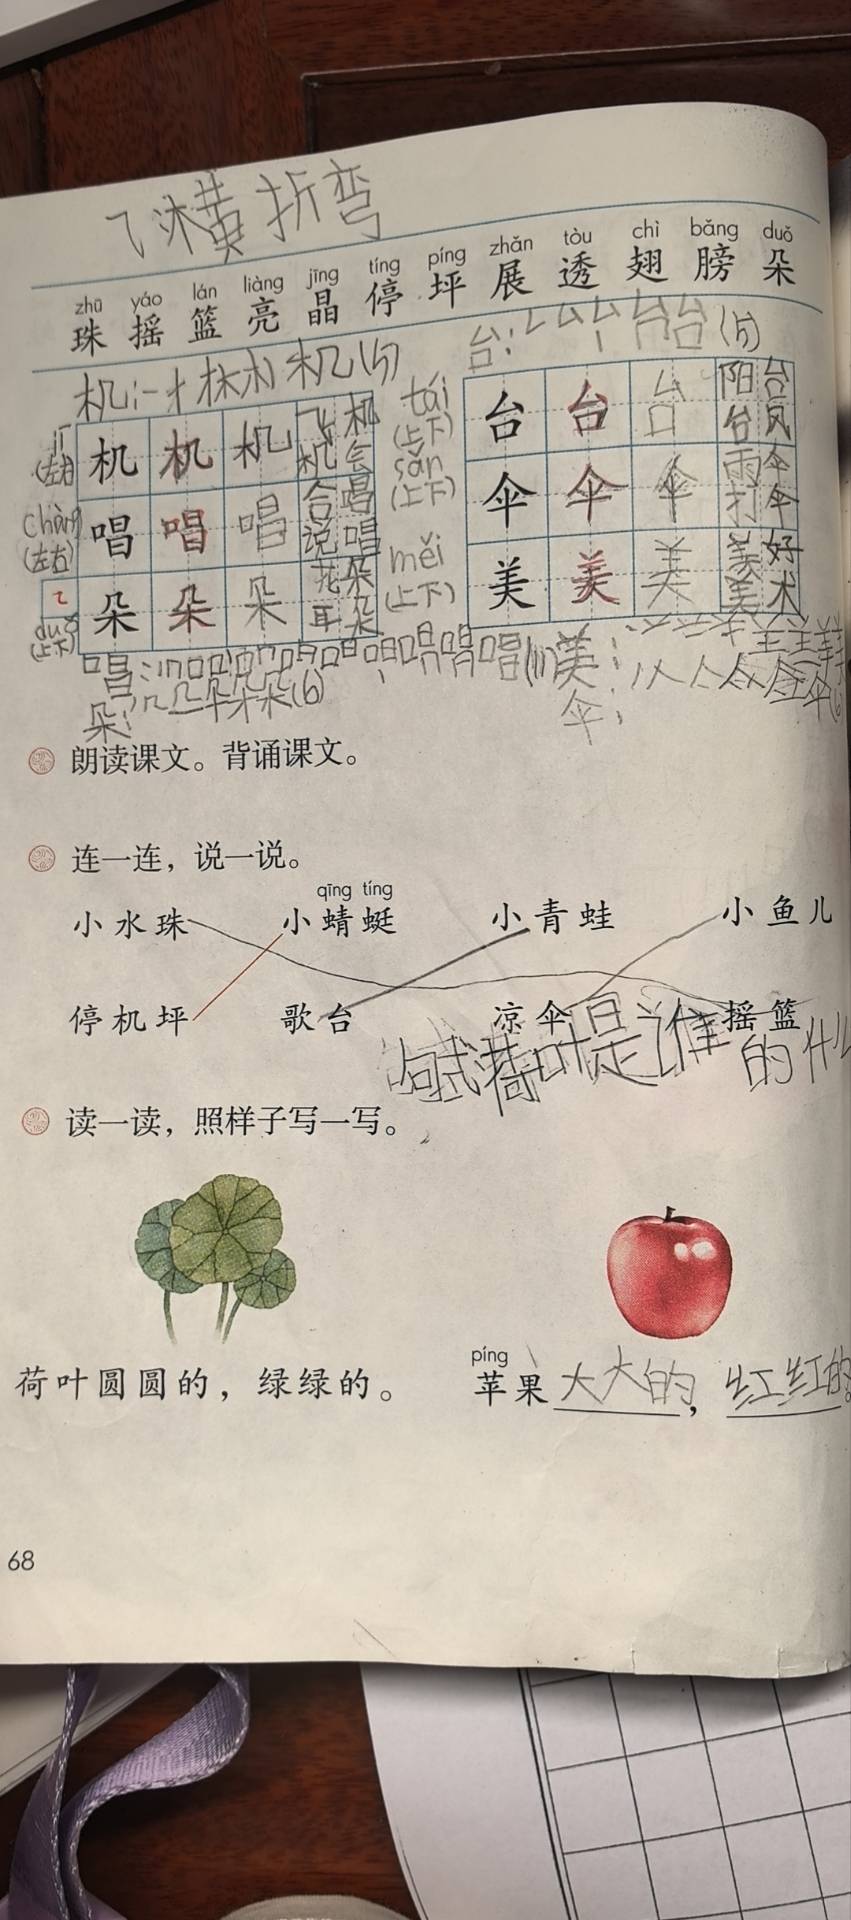 乁 横折弯
zhū yáo lán liàng jīng tíng píng zhǎn tòu chì bǎng duǒ
珠 摇 篮 亮 晶 停 坪 展 透 翅 膀 朵
台：
机：
机 机 机 飞机 机会
(左右)
tái
(上下)
台 台 台 阳台 台风
chàng
(左右)
唱 唱 唱 合唱 说唱
sǎn
(上下)
伞 伞 伞 雨伞 打伞
duǒ
(上下)
朵 朵 朵 花朵 耳朵
měi
(上下)
美 美 美 美好 美术
唱：
(11)
美：
朵：
(6)
伞：
朗读课文。背诵课文。
连一连，说一说。
qīng tíng
小水珠 小蜻蜓 小青蛙 小鱼儿
停机坪 歌台 凉伞 摇篮
句式荷叶是谁的什么
读一读，照样子写一写。
荷叶圆圆的，绿绿的。
píng
苹果大大的，红红的。
68